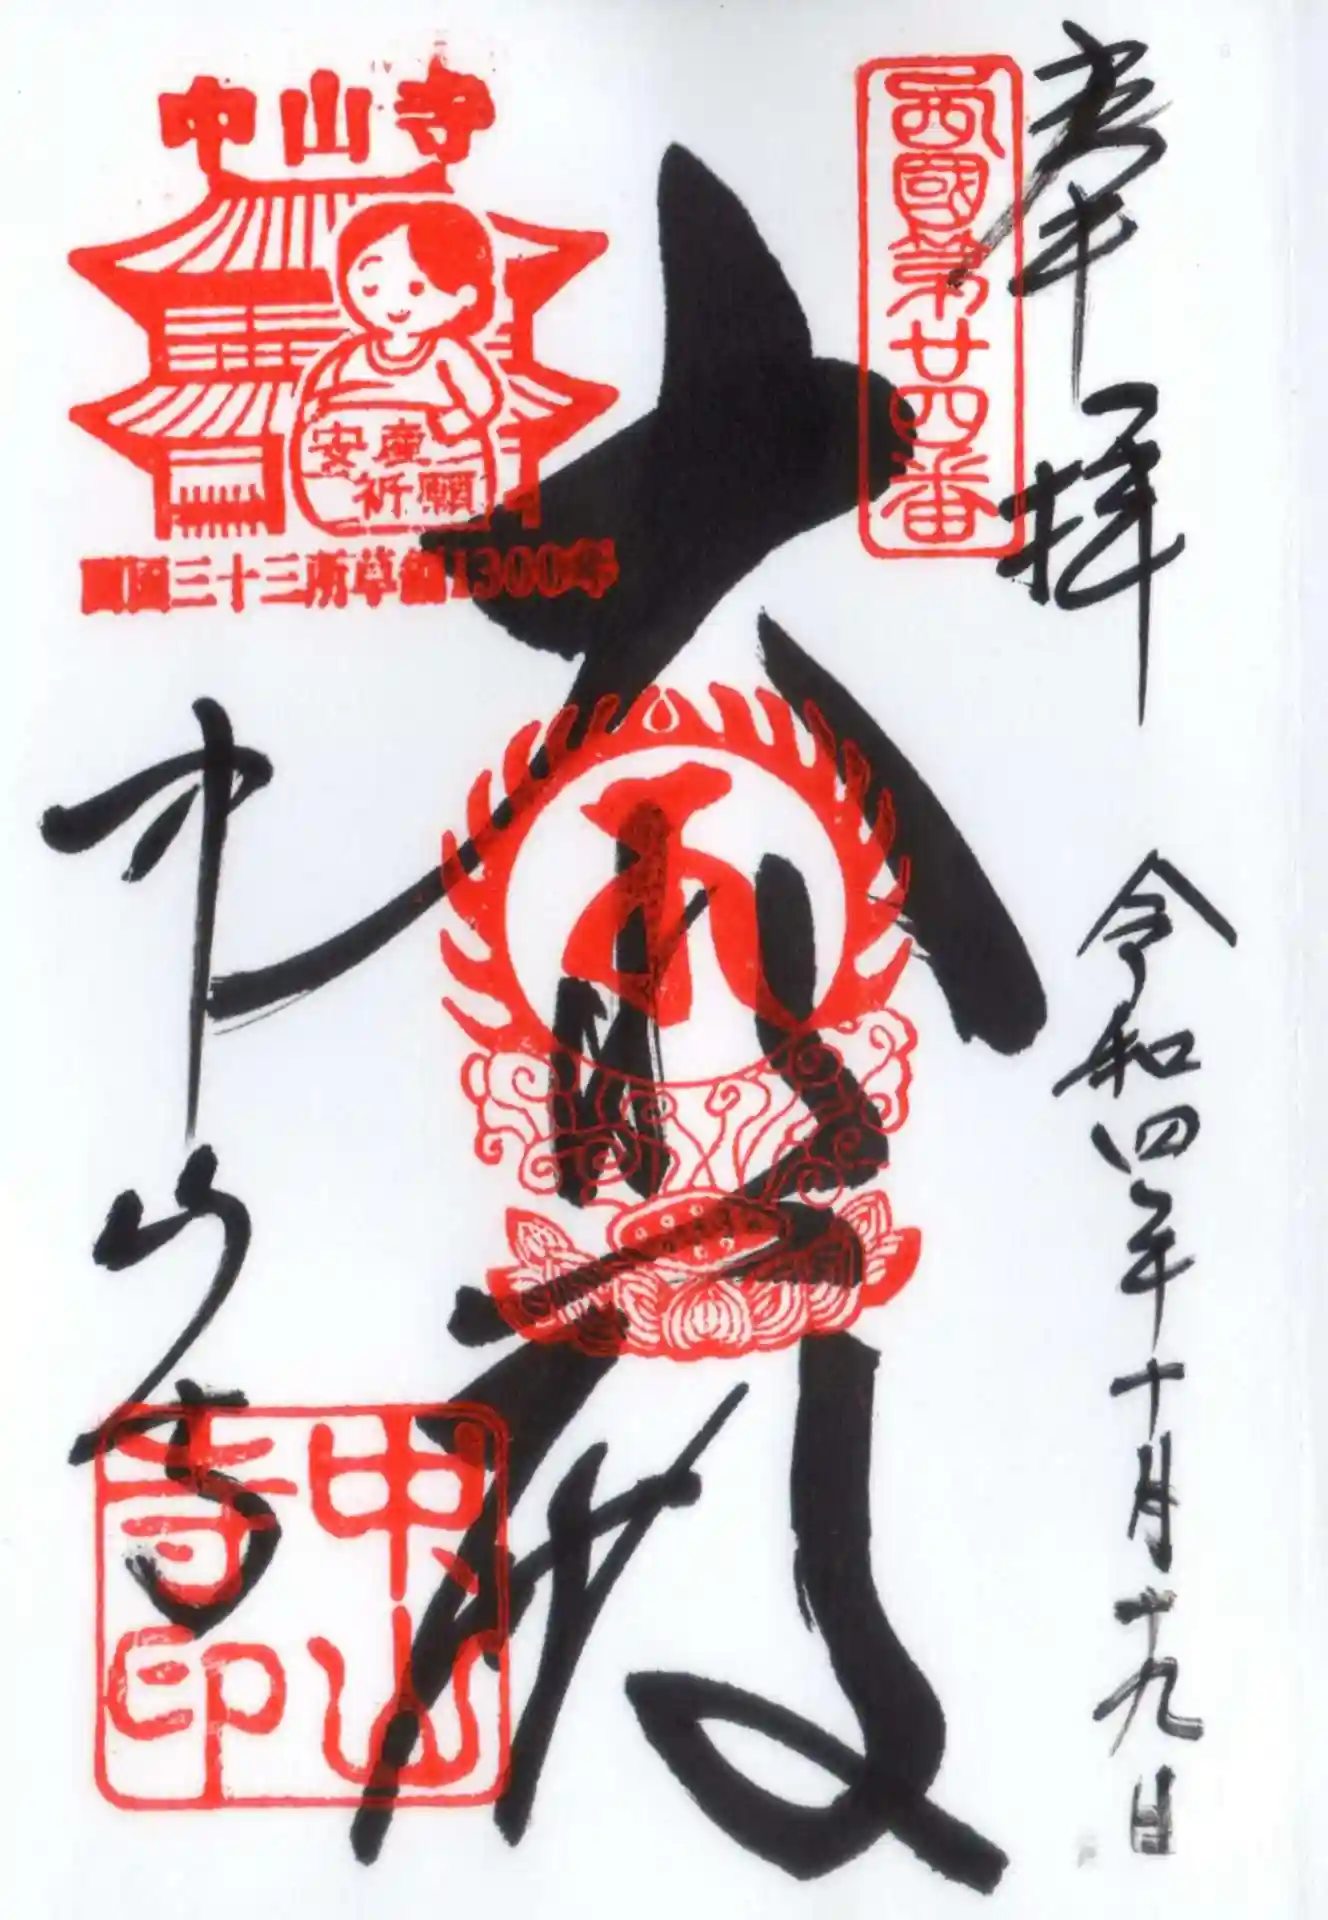 奉拝
令和四年十月十九日
西國第廿四番
大悲殿
中山寺
中山寺
安産
祈願
西国三十三所草創1300年
中山寺印